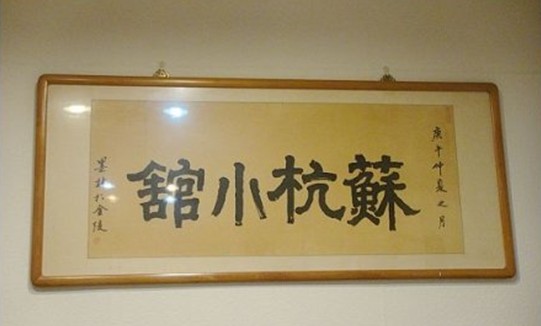 庚午仲夏之月
蘇杭小舘
墨林於金陵